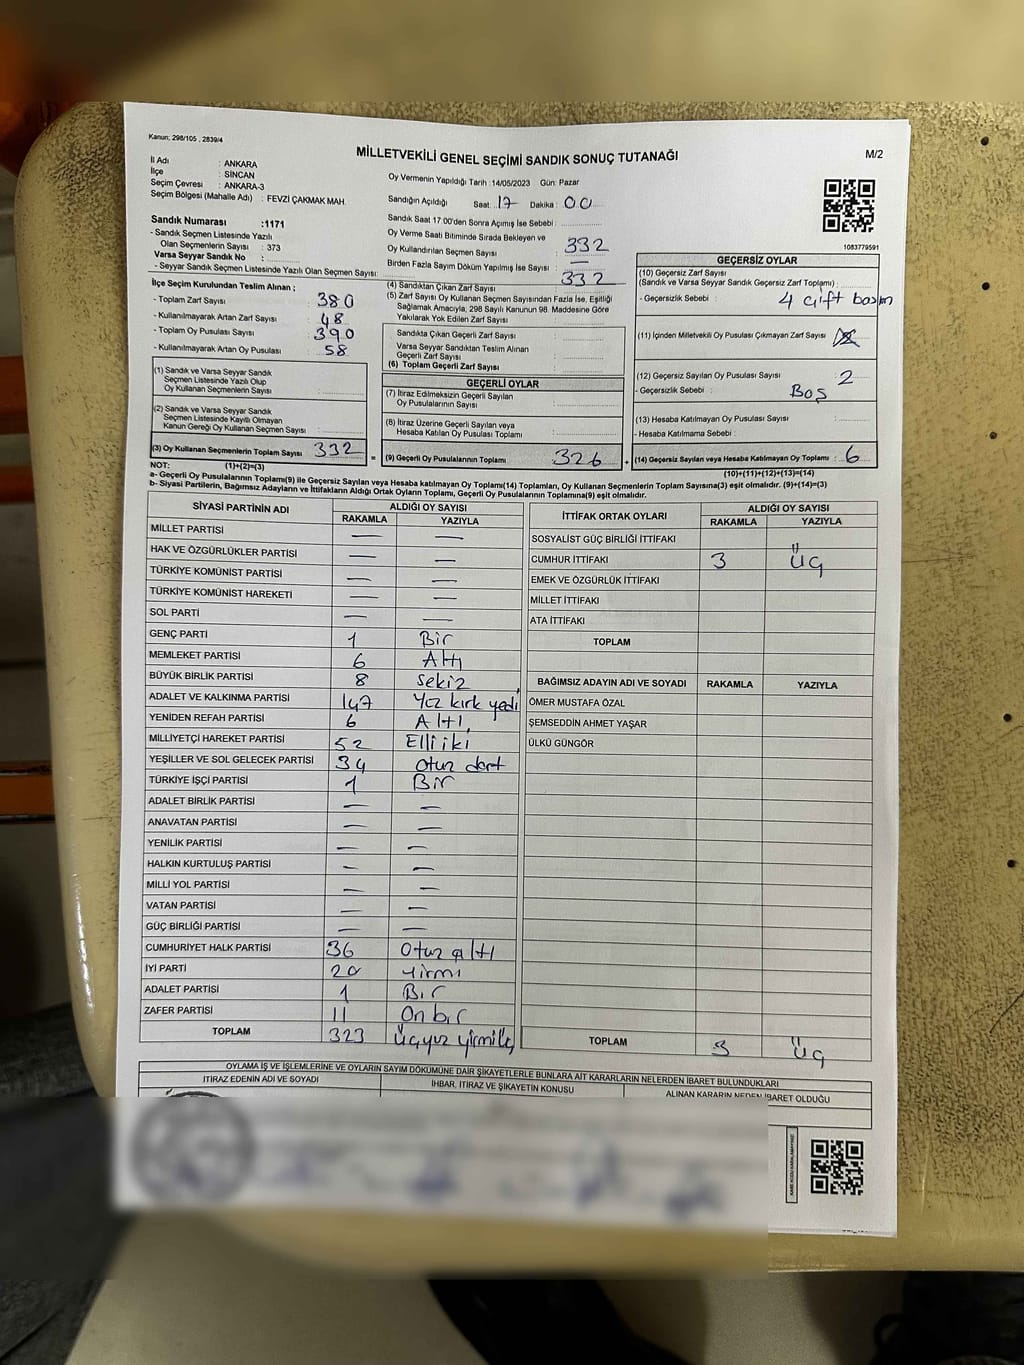 Kanun; 298/105 , 2839/4
MİLLETVEKİLİ GENEL SEÇİMİ SANDIK SONUÇ TUTANAĞI
M/2
İl Adı : ANKARA
İlçe : SİNCAN
Seçim Çevresi : ANKARA-3
Seçim Bölgesi (Mahalle Adı) : FEVZİ ÇAKMAK MAH.
Oy Vermenin Yapıldığı Tarih : 14/05/2023 Gün: Pazar
Sandığın Açıldığı Saat : 17 Dakika : 00
Sandık Numarası :1171
- Sandık Seçmen Listesinde Yazılı
Olan Seçmenlerin Sayısı : 373
Varsa Seyyar Sandık No :
- Seyyar Sandık Seçmen Listesinde Yazılı Olan Seçmen Sayısı:
Sandık Saat 17.00'den Sonra Açılmış İse Sebebi :
Oy Verme Saati Bitiminde Sırada Bekleyen ve
Oy Kullandırılan Seçmen Sayısı 332
Birden Fazla Sayım Döküm Yapılmış İse Sayısı : —
1083779591
İlçe Seçim Kurulundan Teslim Alınan ;
- Toplam Zarf Sayısı : 380
- Kullanılmayarak Artan Zarf Sayısı : 48
- Toplam Oy Pusulası Sayısı : 390
- Kullanılmayarak Artan Oy Pusulası : 58
(1) Sandık ve Varsa Seyyar Sandık
Seçmen Listesinde Yazılı Olup
Oy Kullanan Seçmenlerin Sayısı :
(2) Sandık ve Varsa Seyyar Sandık
Seçmen Listesinde Kayıtlı Olmayan
Kanun Gereği Oy Kullanan Seçmen Sayısı :
(3) Oy Kullanan Seçmenlerin Toplam Sayısı : 332
(4) Sandıktan Çıkan Zarf Sayısı : 332
(5) Zarf Sayısı Oy Kullanan Seçmen Sayısından Fazla İse, Eşitliği
Sağlamak Amacıyla, 298 Sayılı Kanunun 98. Maddesine Göre
Yakılarak Yok Edilen Zarf Sayısı :
Sandıkta Çıkan Geçerli Zarf Sayısı :
Varsa Seyyar Sandıktan Teslim Alınan
Geçerli Zarf Sayısı :
(6) Toplam Geçerli Zarf Sayısı :
GEÇERLİ OYLAR
(7) İtiraz Edilmeksizin Geçerli Sayılan
Oy Pusulalarının Sayısı :
(8) İtiraz Üzerine Geçerli Sayılan veya
Hesaba Katılan Oy Pusulası Toplamı :
= (9) Geçerli Oy Pusulalarının Toplamı : 326
GEÇERSİZ OYLAR
(10) Geçersiz Zarf Sayısı
(Sandık ve Varsa Seyyar Sandık Geçersiz Zarf Toplamı) :
- Geçersizlik Sebebi : 4 çift basım
(11) İçinden Milletvekili Oy Pusulası Çıkmayan Zarf Sayısı :
(12) Geçersiz Sayılan Oy Pusulası Sayısı : 2
- Geçersizlik Sebebi : Boş
(13) Hesaba Katılmayan Oy Pusulası Sayısı :
- Hesaba Katılmama Sebebi :
+ (14) Geçersiz Sayılan veya Hesaba Katılmayan Oy Toplamı : 6
NOT: (1)+(2)=(3)
(10)+(11)+(12)+(13)=(14)
a- Geçerli Oy Pusulalarının Toplamı(9) ile Geçersiz Sayılan veya Hesaba katılmayan Oy Toplamı(14) Toplamları, Oy Kullanan Seçmenlerin Toplam Sayısına(3) eşit olmalıdır. (9)+(14)=(3)
b- Siyasi Partilerin, Bağımsız Adayların ve İttifakların Aldığı Ortak Oyların Toplamı, Geçerli Oy Pusulalarının Toplamına(9) eşit olmalıdır.
SİYASİ PARTİNİN ADI ALDIĞI OY SAYISI
RAKAMLA YAZIYLA
MİLLET PARTİSİ — —
HAK VE ÖZGÜRLÜKLER PARTİSİ — —
TÜRKİYE KOMÜNİST PARTİSİ — —
TÜRKİYE KOMÜNİST HAREKETİ — —
SOL PARTİ — —
GENÇ PARTİ 1 Bir
MEMLEKET PARTİSİ 6 Altı
BÜYÜK BİRLİK PARTİSİ 8 sekiz
ADALET VE KALKINMA PARTİSİ 147 Yüz kırk yedi
YENİDEN REFAH PARTİSİ 6 Altı
MİLLİYETÇİ HAREKET PARTİSİ 52 Elli iki
YEŞİLLER VE SOL GELECEK PARTİSİ 34 otuz dört
TÜRKİYE İŞÇİ PARTİSİ 1 Bir
ADALET BİRLİK PARTİSİ — —
ANAVATAN PARTİSİ — —
YENİLİK PARTİSİ — —
HALKIN KURTULUŞ PARTİSİ — —
MİLLİ YOL PARTİSİ — —
VATAN PARTİSİ — —
GÜÇ BİRLİĞİ PARTİSİ — —
CUMHURİYET HALK PARTİSİ 36 Otuz altı
İYİ PARTİ 20 yirmi
ADALET PARTİSİ 1 Bir
ZAFER PARTİSİ 11 On bir
TOPLAM 323 Üçyüz yirmiüç
İTTİFAK ORTAK OYLARI ALDIĞI OY SAYISI
RAKAMLA YAZIYLA
SOSYALİST GÜÇ BİRLİĞİ İTTİFAKI
CUMHUR İTTİFAKI 3 Üç
EMEK VE ÖZGÜRLÜK İTTİFAKI
MİLLET İTTİFAKI
ATA İTTİFAKI
TOPLAM
BAĞIMSIZ ADAYIN ADI VE SOYADI RAKAMLA YAZIYLA
ÖMER MUSTAFA ÖZAL
ŞEMSEDDİN AHMET YAŞAR
ÜLKÜ GÜNGÖR
TOPLAM 3 Üç
OYLAMA İŞ VE İŞLEMLERİNE VE OYLARIN SAYIM DÖKÜMÜNE DAİR ŞİKAYETLERLE BUNLARA AİT KARARLARIN NELERDEN İBARET BULUNDUKLARI
İTİRAZ EDENİN ADI VE SOYADI İHBAR, İTİRAZ VE ŞİKAYETİN KONUSU ALINAN KARARIN NEDEN İBARET OLDUĞU